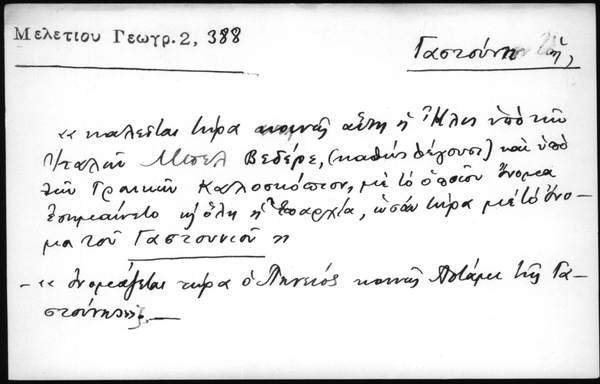 Μελετίου Γεωγρ. 2, 388
Γαστούνη ἡ,
« καλεῖται τώρα κοινῶς αὕτη ἡ Ἦλις ὑπὸ τῶν
Ἰταλῶν Μπελ Βεδέρε, (καθὼς λέγουσι) καὶ ὑπὸ
τῶν Γραικῶν Καλοσκόπιον, μὲ τὸ ὁποῖον ὄνομα
ἐσημαίνετο κ ὅλη ἡ Ἐπαρχία, ὡσὰν τώρα μὲ τὸ ὄνο-
μα τοῦ Γαστουνίου »
– « ὀνομάζεται τώρα ὁ Πηνειός κοινῶς Ποτάμι τῆς Γα-
στούνης». —